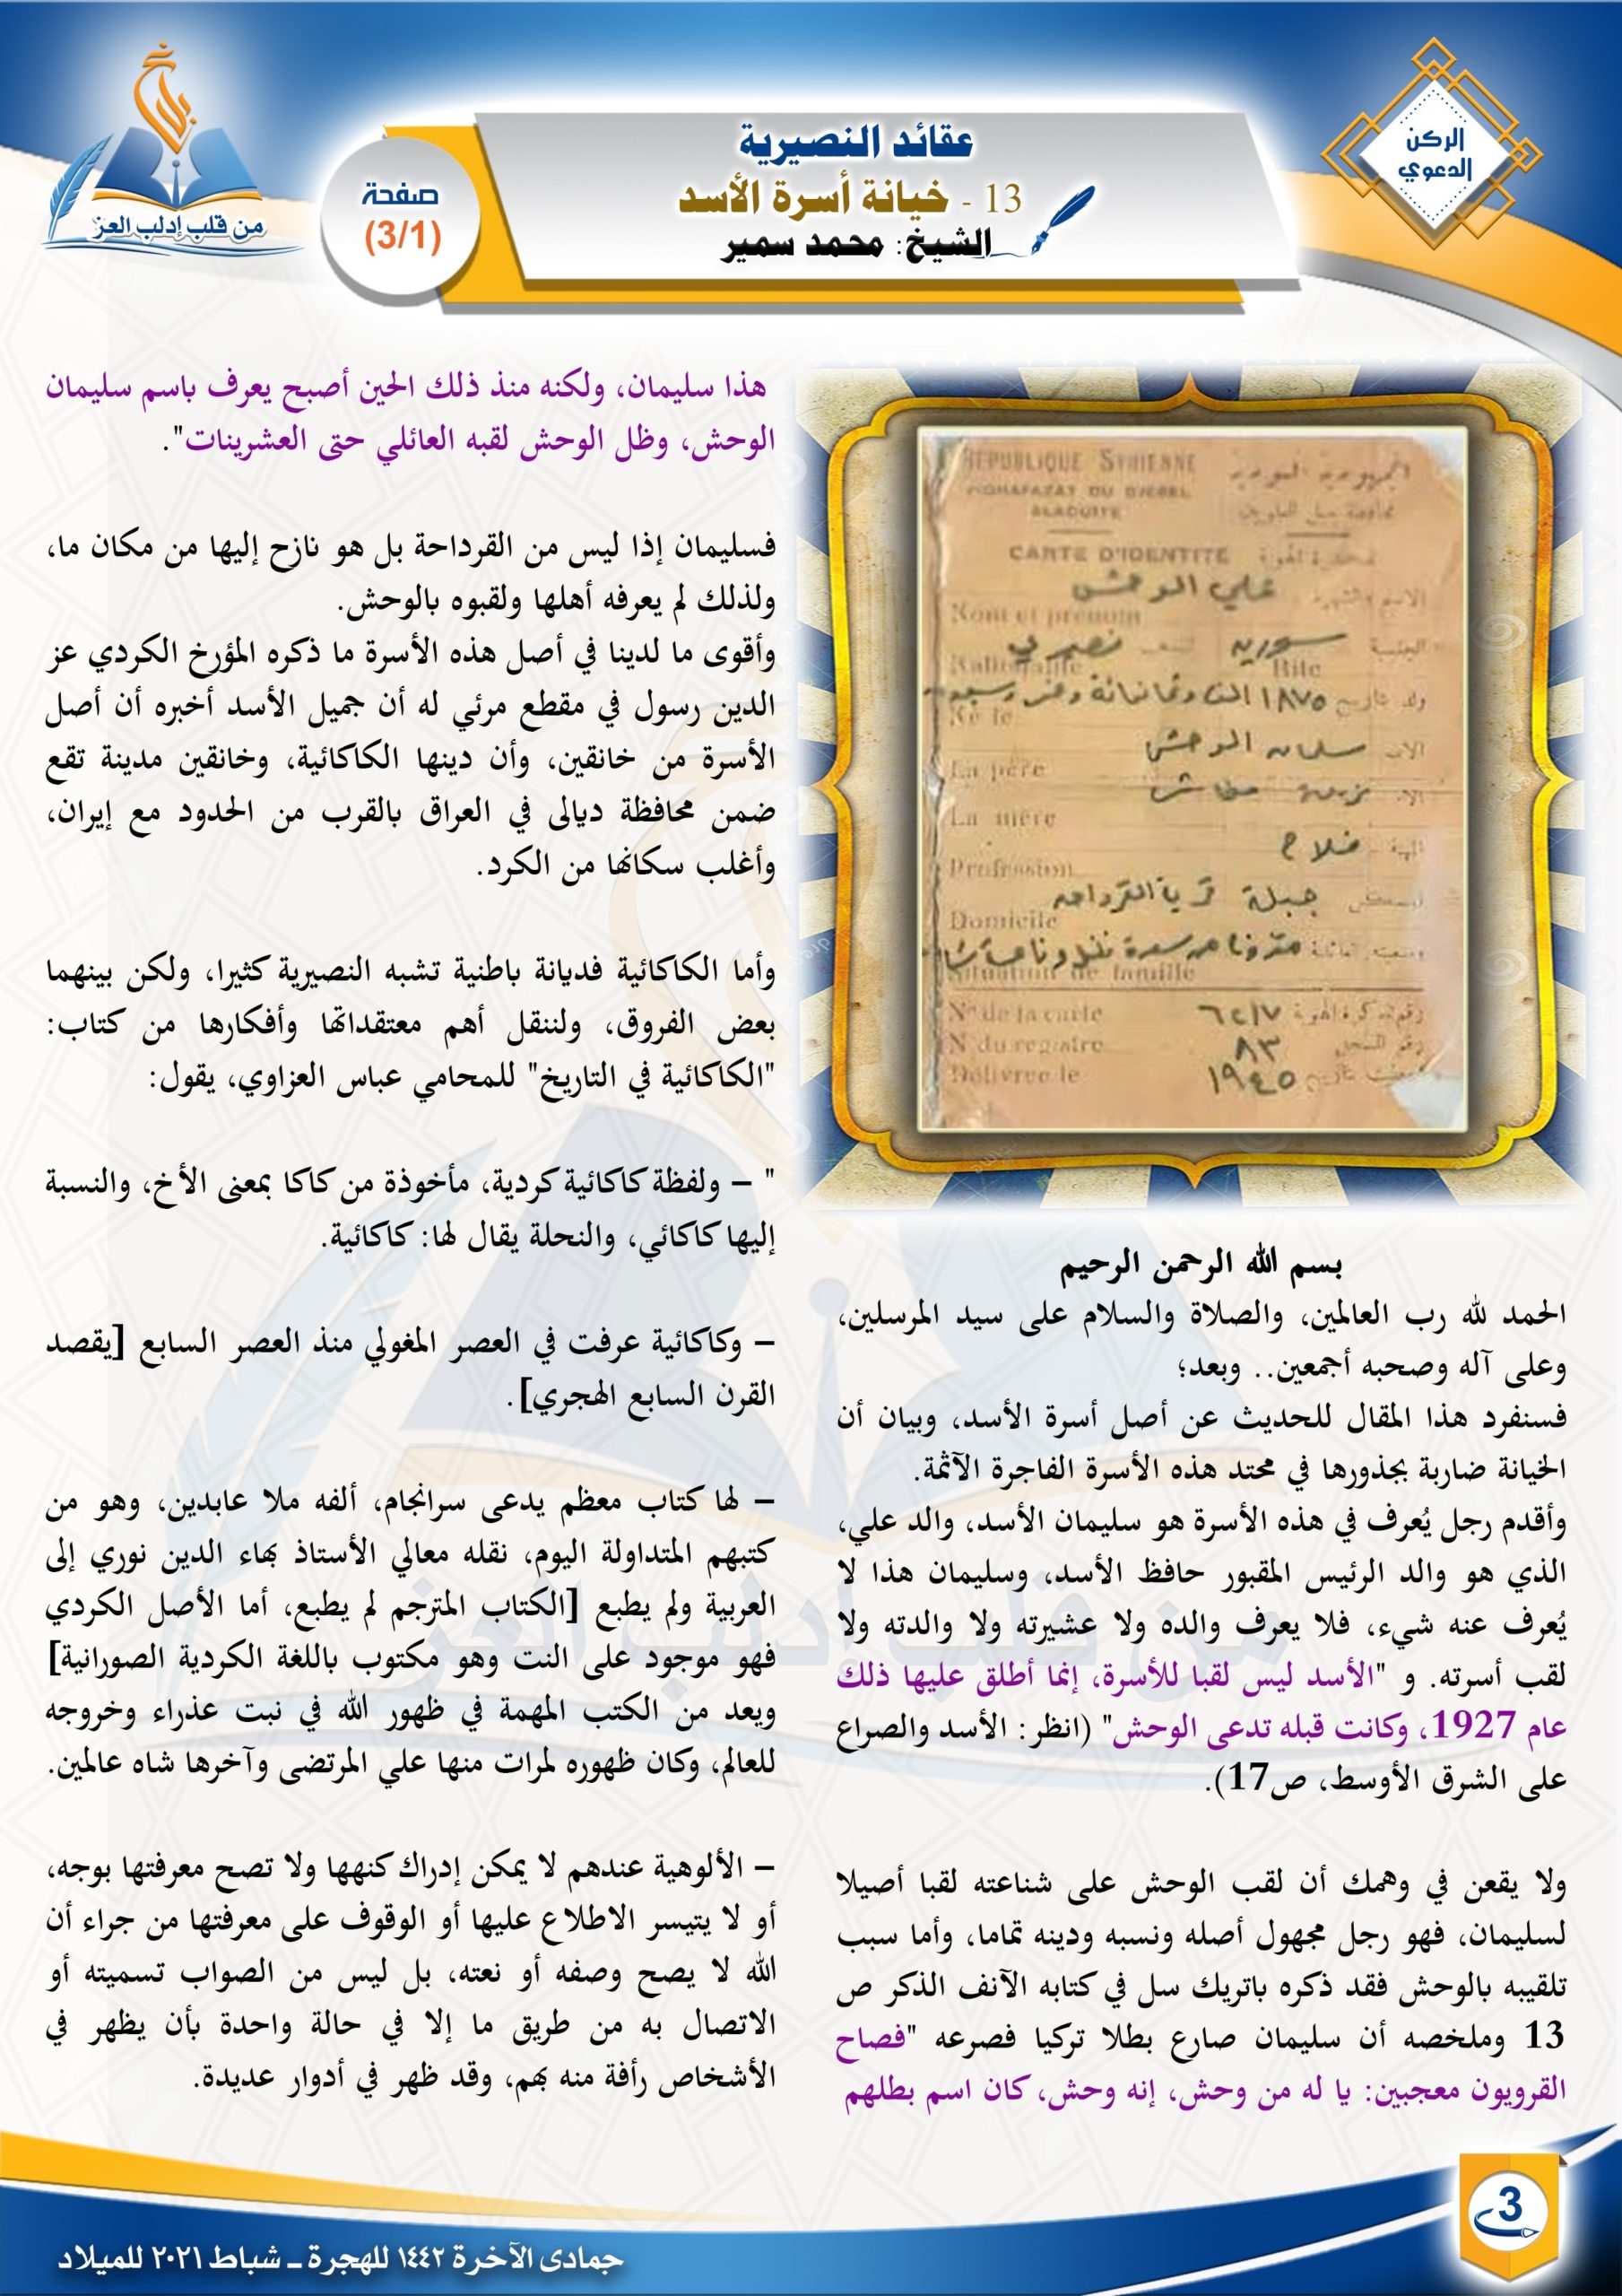 بلاغ
من قلب إدلب العز
الركن
الدعوي
عقائد النصيرية
13 - خيانة أسرة الأسد
الشيخ: محمد سمير
صفحة
(3/1)
REPUBLIQUE SYRIENNE
MOHAFAZAT DU DJEBEL
ALAOUITE
CARTE D'IDENTITE
علي الوحش
Nom et prénom
سورية
نصيري
Nationalité
Rite
١٨٧٥
Né le
سليمان الوحش
الاب
La père
La mère
فلاح
Profession
جبلة قرية القرداحه
Domicile
Situation de famille
Nº de la carte
N du registre
٨٣
Délivree le
١٩٤٥
بسم الله الرحمن الرحيم
الحمد لله رب العالمين، والصلاة والسلام على سيد المرسلين،
وعلى آله وصحبه أجمعين.. وبعد؛
فسنفرد هذا المقال للحديث عن أصل أسرة الأسد، وبيان أن
الخيانة ضاربة بجذورها في محتد هذه الأسرة الفاجرة الآثمة.
وأقدم رجل يُعرف في هذه الأسرة هو سليمان الأسد، والد علي،
الذي هو والد الرئيس المقبور حافظ الأسد، وسليمان هذا لا
يُعرف عنه شيء، فلا يعرف والده ولا عشيرته ولا والدته ولا
لقب أسرته. و "الأسد ليس لقبا للأسرة، إنما أطلق عليها ذلك
عام 1927، وكانت قبله تدعى الوحش" (انظر: الأسد والصراع
على الشرق الأوسط، ص17).
ولا يقعن في وهمك أن لقب الوحش على شناعته لقبا أصيلا
لسليمان، فهو رجل مجهول أصله ونسبه ودينه تماما، وأما سبب
تلقيبه بالوحش فقد ذكره باتريك سل في كتابه الآنف الذكر ص
13 وملخصه أن سليمان صارع بطلا تركيا فصرعه "فصاح
القرويون معجبين: يا له من وحش، إنه وحش، كان اسم بطلهم
هذا سليمان، ولكنه منذ ذلك الحين أصبح يعرف باسم سليمان
الوحش، وظل الوحش لقبه العائلي حتى العشرينات".
فسليمان إذا ليس من القرداحة بل هو نازح إليها من مكان ما،
ولذلك لم يعرفه أهلها ولقبوه بالوحش.
وأقوى ما لدينا في أصل هذه الأسرة ما ذكره المؤرخ الكردي عز
الدين رسول في مقطع مرئي له أن جميل الأسد أخبره أن أصل
الأسرة من خانقين، وأن دينها الكاكائية، وخانقين مدينة تقع
ضمن محافظة ديالى في العراق بالقرب من الحدود مع إيران،
وأغلب سكانها من الكرد.
وأما الكاكائية فديانة باطنية تشبه النصيرية كثيرا، ولكن بينهما
بعض الفروق، ولننقل أهم معتقداتها وأفكارها من كتاب:
"الكاكائية في التاريخ" للمحامي عباس العزاوي، يقول:
" – ولفظة كاكائية كردية، مأخوذة من كاكا بمعنى الأخ، والنسبة
إليها كاكائي، والنحلة يقال لها: كاكائية.
– وكاكائية عرفت في العصر المغولي منذ العصر السابع [يقصد
القرن السابع الهجري].
– لها كتاب معظم يدعى سرانجام، ألفه ملا عابدين، وهو من
كتبهم المتداولة اليوم، نقله معالي الأستاذ بهاء الدين نوري إلى
العربية ولم يطبع [الكتاب المترجم لم يطبع، أما الأصل الكردي
فهو موجود على النت وهو مكتوب باللغة الكردية الصورانية]
ويعد من الكتب المهمة في ظهور الله في نبت عذراء وخروجه
للعالم، وكان ظهوره لمرات منها علي المرتضى وآخرها شاه عالمين.
– الألوهية عندهم لا يمكن إدراك كنهها ولا تصح معرفتها بوجه،
أو لا يتيسر الاطلاع عليها أو الوقوف على معرفتها من جراء أن
الله لا يصح وصفه أو نعته، بل ليس من الصواب تسميته أو
الاتصال به من طريق ما إلا في حالة واحدة بأن يظهر في
الأشخاص رأفة منه بهم، وقد ظهر في أدوار عديدة.
3
جمادى الآخرة ١٤٤٢ للهجرة ـ شباط ٢٠٢١ للميلاد